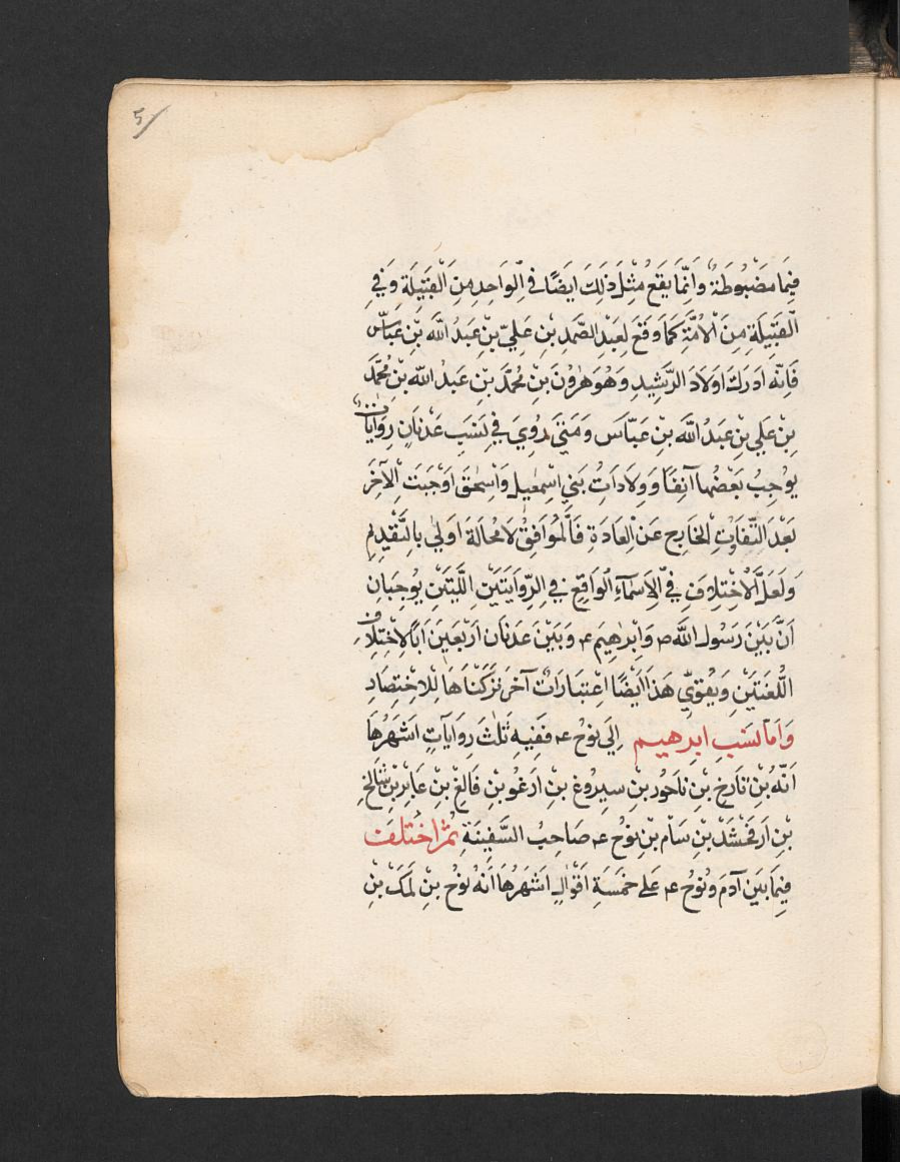 5
فِيمَا مَضْبُوطَةٌ وَاِنَّمَا يَقَعُ مِثْلَ ذٰلِكَ اَيْضًا فِي الْوَاحِدِ مِنَ الْقَبِيلَةِ وَفِي
الْقَبِيلَةِ مِنَ الْاُمَّةِ كَمَا وَقَعَ لِعَبْدِ الصَّمَدِ بْنِ عَلِيّ بْنِ عَبْدُ اللّٰه بْنِ عَبَّاسٍ
فَاِنَّه اَدْرَكَ اَوْلَادَ الرَّشِيدِ وَهُوَ هٰرُونَ بْنِ مُحَمَّدَ بْنِ عَبْدُ اللّٰه بْنِ مُحَمَّدَ
بْنِ عَلِي بْنِ عَبْدُ اللّٰه بْنِ عَبَّاسَ وَمَتَى رُوِيَ فِي نَسَبِ عَدْنَانِ رِوَايَاتٌ
يُوجِبُ بَعْضُهَا وَوِلَادَاتُ بَنِي اِسْمٰعِيل وَاِسْحٰقَ اَوْجَبَتْ اْلآخَرَ
بَعْدَ التَّفَاوُتِ الْخَارِج عَنِ الْعَادَةِ فَالْمُوَافِقُ لَا مَحَالَةَ اَوْلٰى بِالتَّقْدِيمِ
وَلَعَلَّ الْاِخْتِلَافَ فِي الْاَسْمَآءِ الْوَاقِعِ فِي الرِّوَايَتَيْنِ اللَّتَيْنِ يُوجِبَانِ
اَنَّ بَيْنَ رَسُول اللّٰه ص وَاِبْرٰهِيمَ ع وَبَيْنَ عَدْنَان اَرْبَعِينَ اَبًا لِاخْتِلَافِ
اللُّغَتَيْنِ وَيُقَوِّي هٰذَا اَيْضًا اِعْتِبَارَاتٌ آخَر تَرَكْنَاهَا لِلْاِخْتِصَارِ
وَاَمَّا نَسَبِ اِبْرٰهِيم اِلَى نُوحْ ع فَفِيهِ ثَلٰثَ رِوَايَاتٍ اَشْهَرُهَا
اَنَّهُ بْنِ تَارَخ بْنِ نَاحُور بْنِ سِيرُوغ بْنِ اَرْغُو بْنِ فَالِغ بْنِ عَابِر بْنِ شَالَخ
بْنِ اَرْفَخْشَدْ بْنِ سَام بْنِ نُوحْ ع صَاحِبُ السَّفِينَةِ ثُمَّ اخْتُلِفَ
فِيمَا بَيْنَ آدَمَ وَنُوحْ ع عَلٰى خَمْسَةِ اَقْوَالٍ اَشْهَرُهَا اَنَّهُ نُوحْ بْنِ لَمَكْ بْنِ